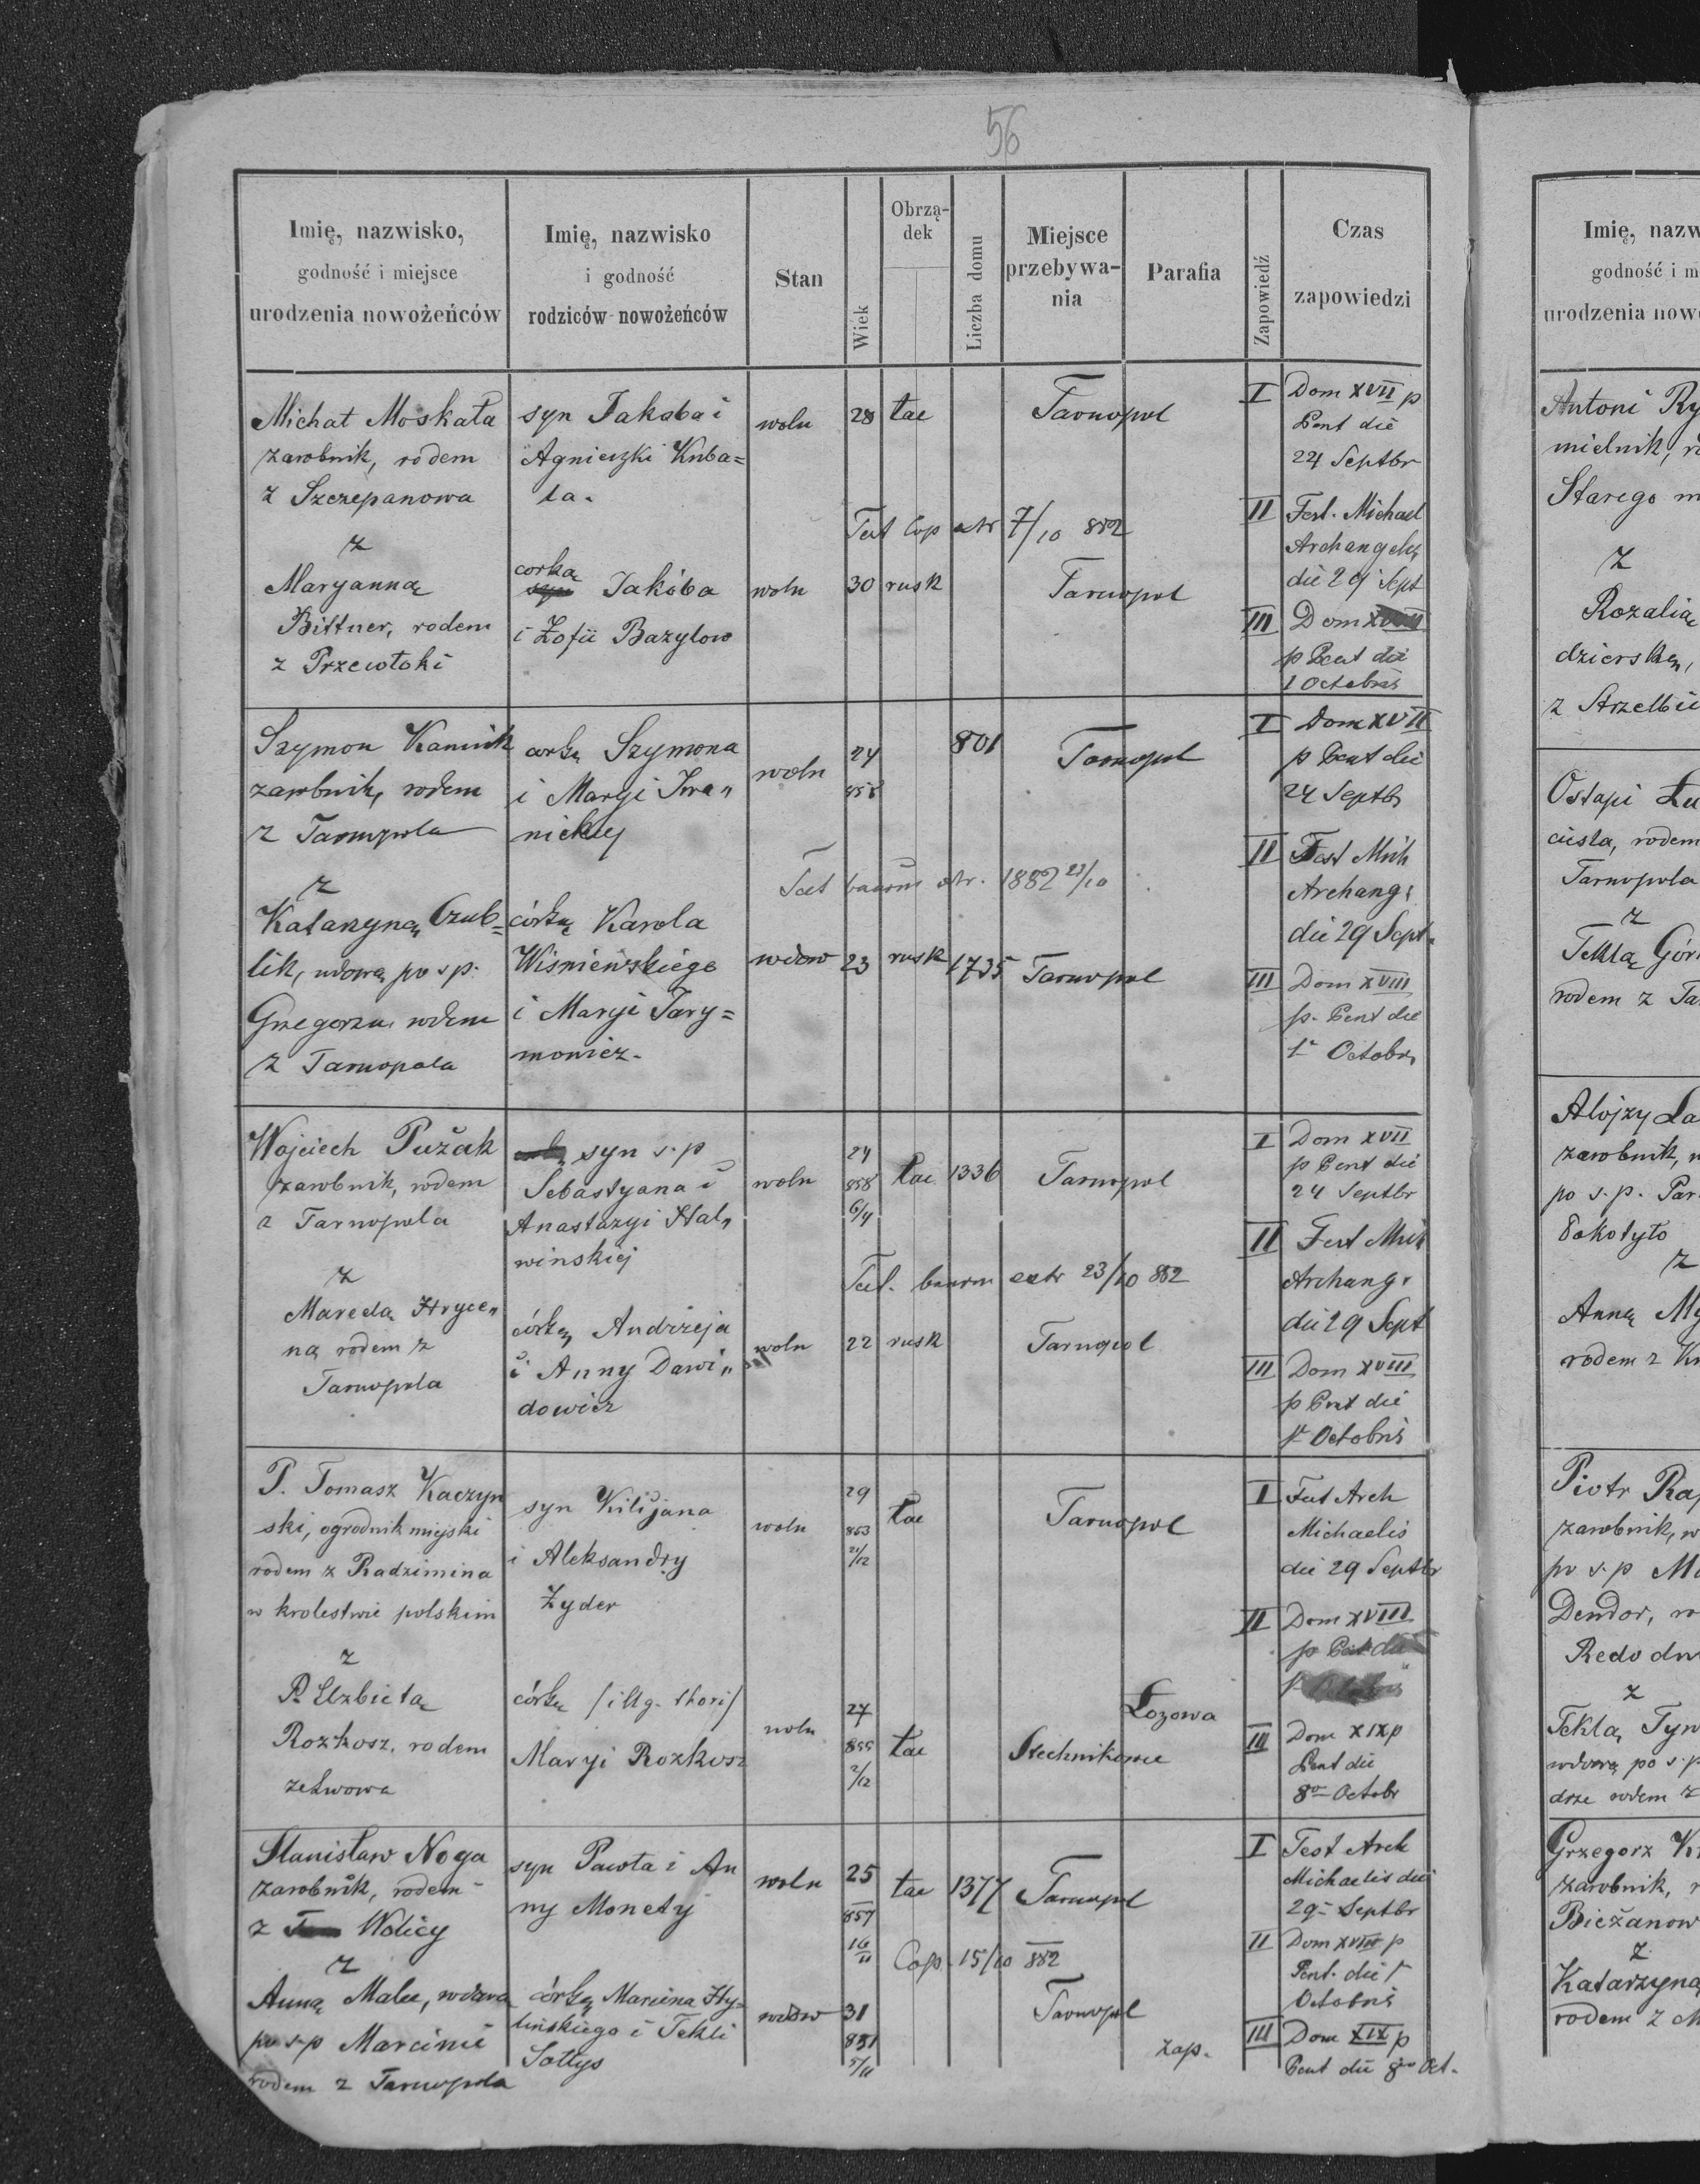 56
Imię, nazwisko,
godność i miejsce
urodzenia nowożeńców
Imię, nazwisko
i godność
rodziców nowożeńców
Stan
Wiek
Obrzą-
dek
Liczba domu
Miejsce
przebywa-
nia
Parafia
Zapowiedź
Czas
zapowiedzi
Michał Moskała
zarobnik, rodem
z Szczepanowa
z
Maryanną
Bittner, rodem
z Przewłoki
syn Jakóba i
Agnieszki Kuba=
ta.
corką
syn Jakóba
i Zofii Bazylow
woln 28 lac Tarnopol
Test Cop extr 7/10 882
woln 30 rusk Tarnopol
I Dom XVII p
Pent die
24 Septbr
II Fest. Michael
Archangeli
die 29 Sept
III Dom
p Pent die
1 Octobris
Szymon Kaminik
zarobnik, rodem
z Tarnopola
z
Katarzyną Czub=
lik, wdową po sp.
Grzegorzu rodem
z Tarnopola
corką Szymona
i Maryi Iwa„
nickiej
córką Karola
Wisniewskiego
i Maryi Jary=
mowicz.
woln 24 858 801 Tarnopol
Test bannor extr. 1882 23/10
wdow 23 rusk 1735 Tarnopol
I Dom XVII
p Pent die
24 Septbr
II Fest Mich
Archang.
die 29 Sept.
III Dom XVIII
p. Pent die
1a Octobr.
Wojciech Pużak
zarobnik, rodem
z Tarnopola
z
Hryce„
ną rodem z
Tarnopola
syn s. p
Sebastyana i
Anastazyi Hal„
winskiej
córką Andrzeja
i Anny Dawi„
dowicz
woln 24 858 6/4 lac 1336 Tarnopol
Test. bannor extr 23/10 882
woln 22 rusk Tarnopol
I Dom XVII
p Pent die
24 Septbr
II Fest Mich
Archang.
die 29 Sept
III Dom XVIII
p Pent die
1a Octobris
P. Tomasz Kaczyn
ski, ogrodnik miejski
rodem z Radzimina
w krolestwie polskim
z
P. Elzbietą
Rozkosz, rodem
ze Lwowa
syn Kilijana
i Aleksandry
Zyder
córką /illg. thori/
Maryi Rozkosz
woln 29 853 21/12 lac Tarnopol
woln 27 855 2/12 lac Stechnikowce Łozowa
I Fest Arch
Michaelis
die 29 Septbr
II Dom XVIII
p Pent die
III Dom XIX p
Pent die
8o Octobr
Stanisław Noga
zarobnik, rodem
z Wolicy
z
Anną Malec, wdową
po s.p Marcinie
rodem z Tarnopola
syn Pawła i An
ny Monety
córką Marcina Hy=
linskiego i Tekli
Sołtys
woln 25 857 16/11 lac 1377 Tarnopol
Cop. 15/10 882
wdow 31 851 5/11 Tarnopol
zap.
I Fest Arch
Michaelis die
29 Septbr
II Dom XVIII p
Pent. die 1
Octobris
III Dom XIX p
Pent die 8vo Oct.
Imię, nazw
godność i m
urodzenia nowo
Antoni Ry
mielnik, ro
Starego m
z
Rozalią
dzierską,
z Strzelbic
Ostapi Łu
ciesla, rodem
Tarnopola
z
Teklą Gór
rodem z Ta
Alojzy La
zarobnik, w
po s. p. Par
z
Anną My
rodem z Kr
Piotr Rap
zarobnik, w
po s.p Ma
Dendor, ro
Redodn
z
Teklą Tyn
wdową po s. p
drze rodem z
Grzegorz Kr
zarobnik, r
Bieżanow
z
Katarzyną
rodem z M